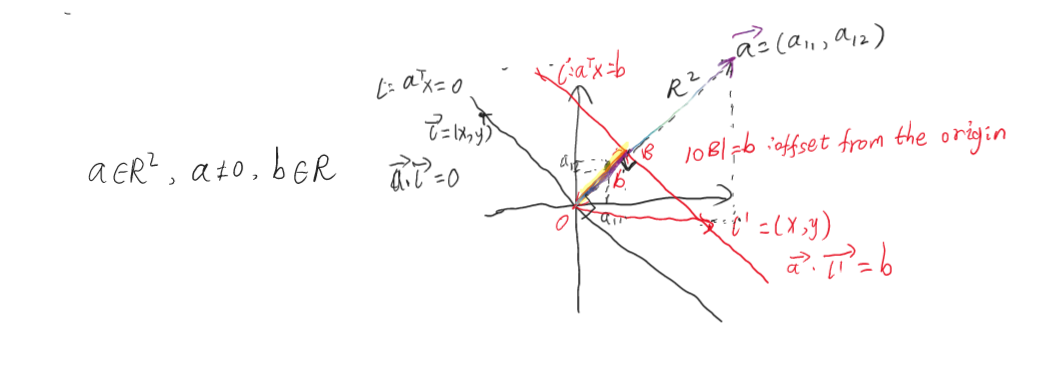 a∈R², a≠0, b∈R
l: aᵀx=0
l⃗=(x,y)
a⃗·l⃗=0
l': aᵀx=b
a⃗=(a₁₁, a₁₂)
R²
a₁₂
B
b
|OB|=b : offset from the origin
O
a₁₁
l'=(x,y)
a⃗·l⃗'=b